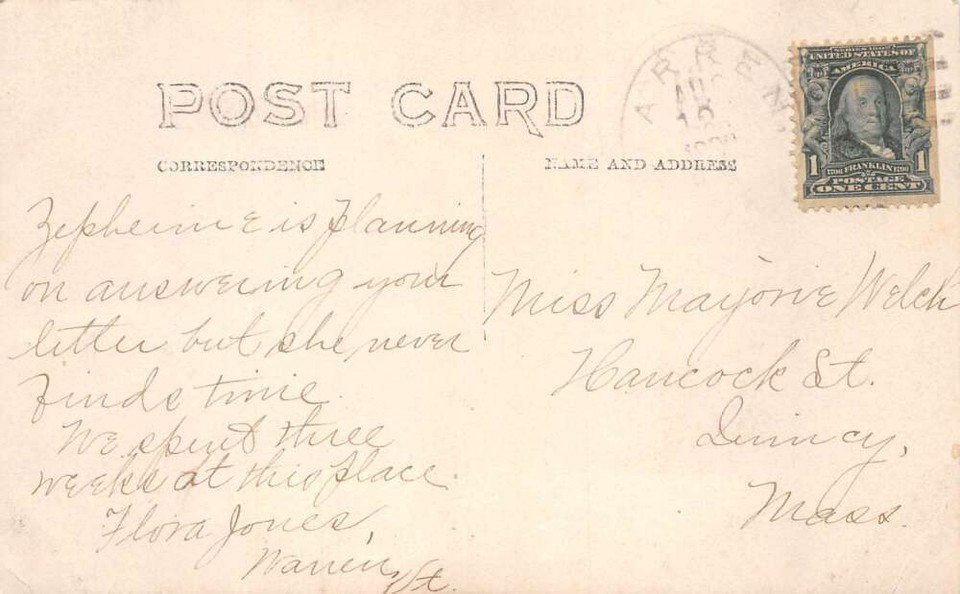 POST CARD
CORRESPONDENCE
NAME AND ADDRESS
ARREN
AUG
SERIES 1902
UNITED STATES OF
AMERICA
1 1706 FRANKLIN 1790 1
POSTAGE
ONE CENT
Zepheirine is planning
on answering your
letter but she never
finds time.
We spent three
weeks at this place.
Flora Jones,
Warren, Vt.
Miss Marjorie Welch
Hancock St.
Quincy,
Mass.